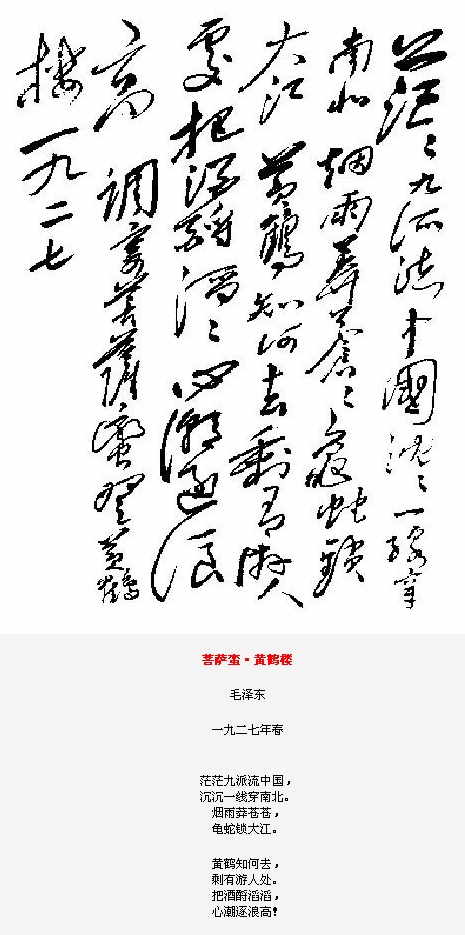 茫〻九派流中國沉〻一線穿
南北烟雨莽蒼〻龜蛇鎖
大江黄鶴知何去剩有游人
處把酒酹滔〻心潮逐浪
高 調寄菩薩蠻登黄鶴
樓一九二七
菩萨蛮·黄鹤楼
毛泽东
一九二七年春
茫茫九派流中国，
沉沉一线穿南北。
烟雨莽苍苍，
龟蛇锁大江。
黄鹤知何去，
剩有游人处。
把酒酹滔滔，
心潮逐浪高！